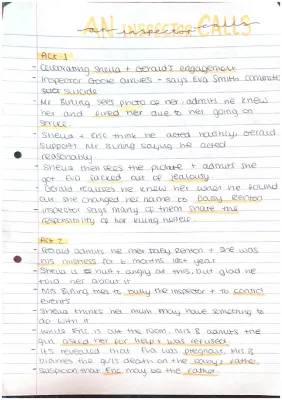 AN INSPECTOR CALLS
an inspector
Act 1
- Celebrating Sheila + Gerald's engagement
- Inspector Goole arrives - says Eva Smith commited
suicide
- Mr Birling sees photo of her, admits he knew
her and fired her due to her going on
strike.
- Sheila + Eric think he acted harshly. Gerald
support Mr Birling saying he acted
reasonably
- Sheila then sees the picture + admits she
got Eva sacked out of jealousy.
- Gerald realises he knew her when he found
out she changed her name to Daisy Renton
- inspector says many of them share the
responsibility of her killing herself
Act 2
- Gerald admits he met Daisy Renton + she was
his mistress for 6 months last year
- Sheila is hurt + angry at this, but glad he
told her about it
- Mrs Birling tries to bully the inspector + to control
events
- Sheila thinks her mum may have something to
do with it
- While Eric is out the room, Mrs B admits the
girl asked her for help + was refused
- It's revealed that Eva was pregnant, Mrs B
blames the girl's death on the baby's father
- Suspicion that Eric may be the father